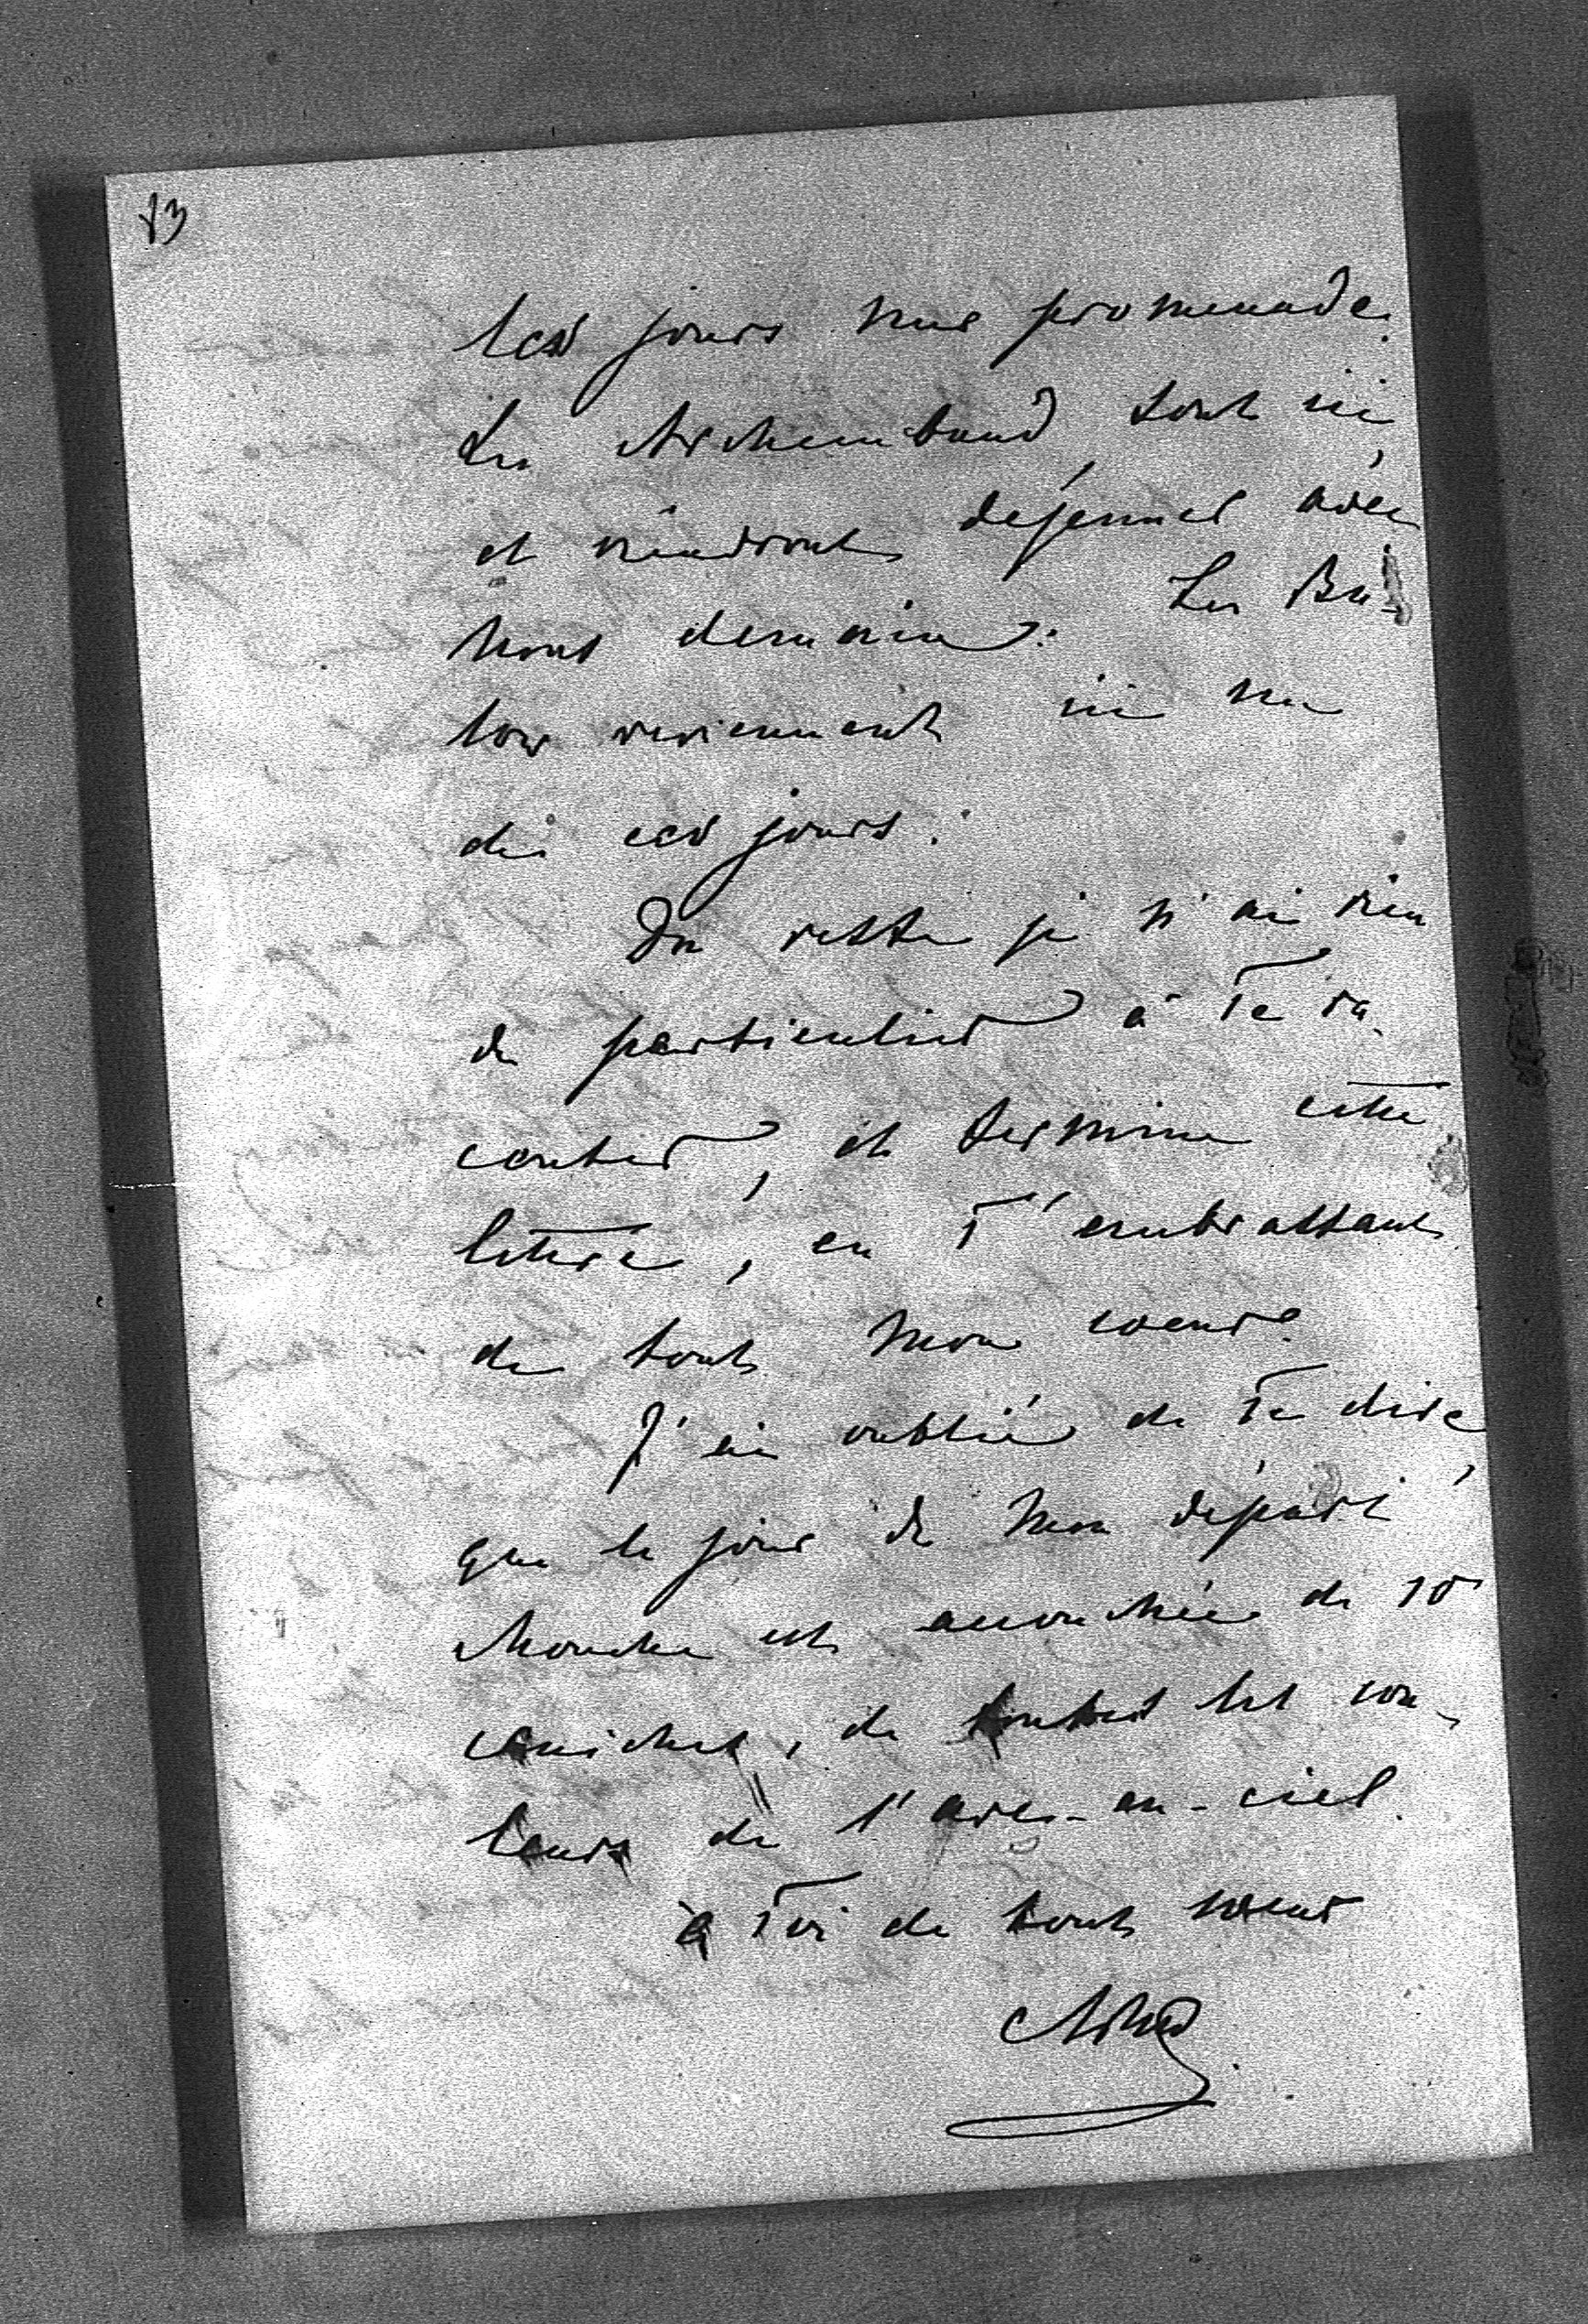 83
les jours une promenade.
Les Archambaud, sont ici,
et viendront déjeuner avec
nous demain. Les Bu-
loz reviennent ici un
de ces jours.
Du reste je n'ai rien
de particulier à te ra-
conter, et termine cette
lettre, en t'embrassant
de tout mon coeur.
J'ai oublié de te dire,
que le jour de mon départ
Mouche est accouchée de 10
caniches, de toutes les cou-
leurs de l'arc-en-ciel.
à toi de tout coeur